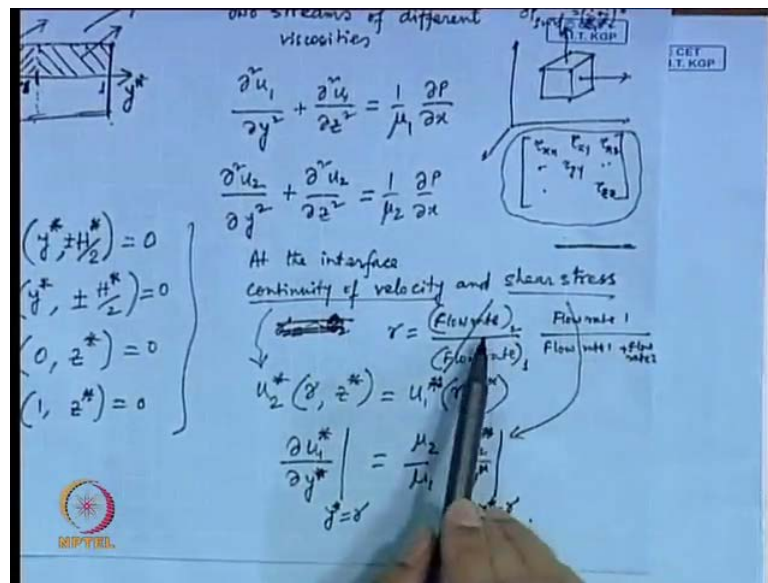 two streams of different
viscosities
I.T. KGP
CET
I.T. KGP
y*
∂²u₁/∂y² + ∂²u₁/∂z² = 1/μ₁ ∂P/∂x
τxx τxy τxz
τyy
τzz
∂²u₂/∂y² + ∂²u₂/∂z² = 1/μ₂ ∂P/∂x
(y*, ±H*/2) = 0
(y*, ±H*/2) = 0
(0, z*) = 0
(1, z*) = 0
At the interface
continuity of velocity and shear stress
γ = (Flow rate)₂/(Flow rate)₁ Flow rate 1/Flow rate 1 + Flow rate 2
u₂*(γ, z*) = u₁*
∂u₁*/∂y*| = μ₂/μ₁
y*=γ
NPTEL